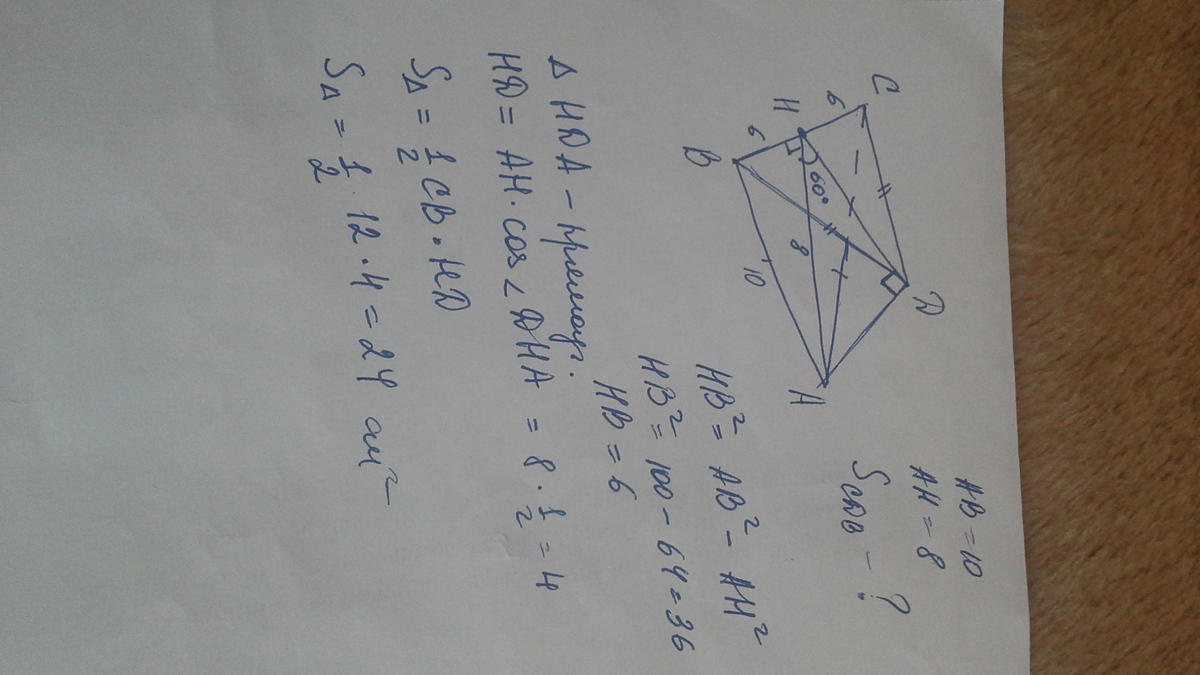 AB = 10
AH = 8
S_CDB - ?
C
6
H
6
B
60°
8
10
D
A
HB² = AB² - AH²
HB² = 100 - 64 = 36
HB = 6
Δ HDA - прямоуг.
HD = AH · cos ∠ DHA = 8 · 1/2 = 4
S_Δ = 1/2 CB · HD
S_Δ = 1/2 · 12 · 4 = 24 см²